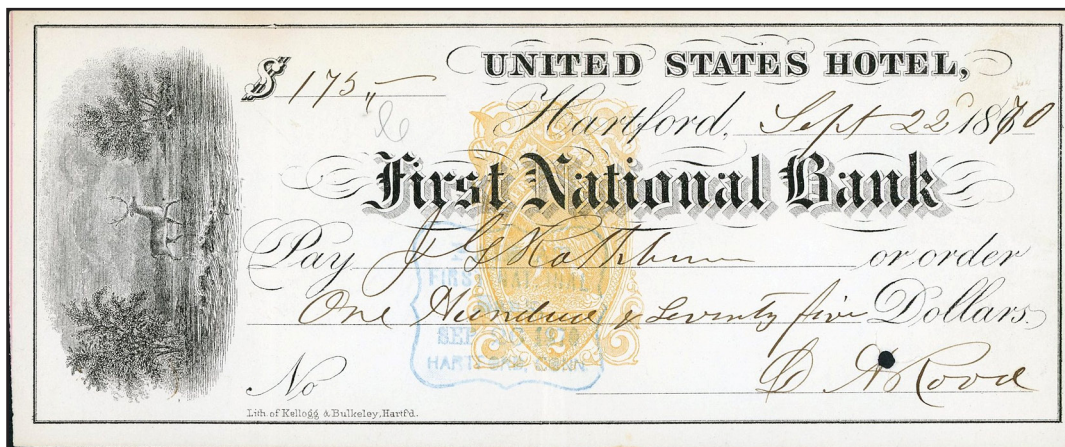 $ 175 "
UNITED STATES HOTEL,
Hartford, Sept 22 1870
First National Bank
Pay J G Rathbun or order
One Hundred & Seventy five Dollars
FIRST NATIONAL
SEP
HARTFORD, CONN
No
D A Rood
Lith. of Kellogg & Bulkeley, Hartf'd.